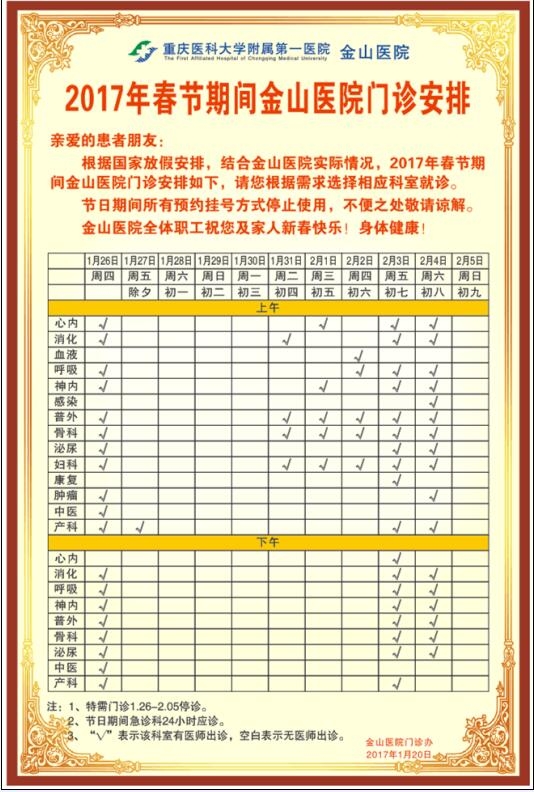 重庆医科大学附属第一医院 金山医院
The First Affiliated Hospital of Chongqing Medical University
2017年春节期间金山医院门诊安排
亲爱的患者朋友：
根据国家放假安排，结合金山医院实际情况，2017年春节期
间金山医院门诊安排如下，请您根据需求选择相应科室就诊。
节日期间所有预约挂号方式停止使用，不便之处敬请谅解。
金山医院全体职工祝您及家人新春快乐！身体健康！
1月26日 1月27日 1月28日 1月29日 1月30日 1月31日 2月1日 2月2日 2月3日 2月4日 2月5日
周四 周五 周六 周日 周一 周二 周三 周四 周五 周六 周日
除夕 初一 初二 初三 初四 初五 初六 初七 初八 初九
上午
心内 √ √ √ √
消化 √ √ √ √
血液 √
呼吸 √ √ √ √
神内 √ √ √ √
感染 √
普外 √ √ √ √ √ √
骨科 √ √ √ √ √ √
泌尿 √ √ √
妇科 √ √ √ √ √ √
康复 √
肿瘤 √ √
中医 √
产科 √ √ √ √
下午
心内 √
消化 √ √ √
呼吸 √ √ √
神内 √ √ √
普外 √ √ √
骨科 √ √ √
泌尿 √ √ √
中医 √
产科 √ √
注：1、特需门诊1.26-2.05停诊。
2、节日期间急诊科24小时应诊。
3、“√”表示该科室有医师出诊，空白表示无医师出诊。
金山医院门诊办
2017年1月20日